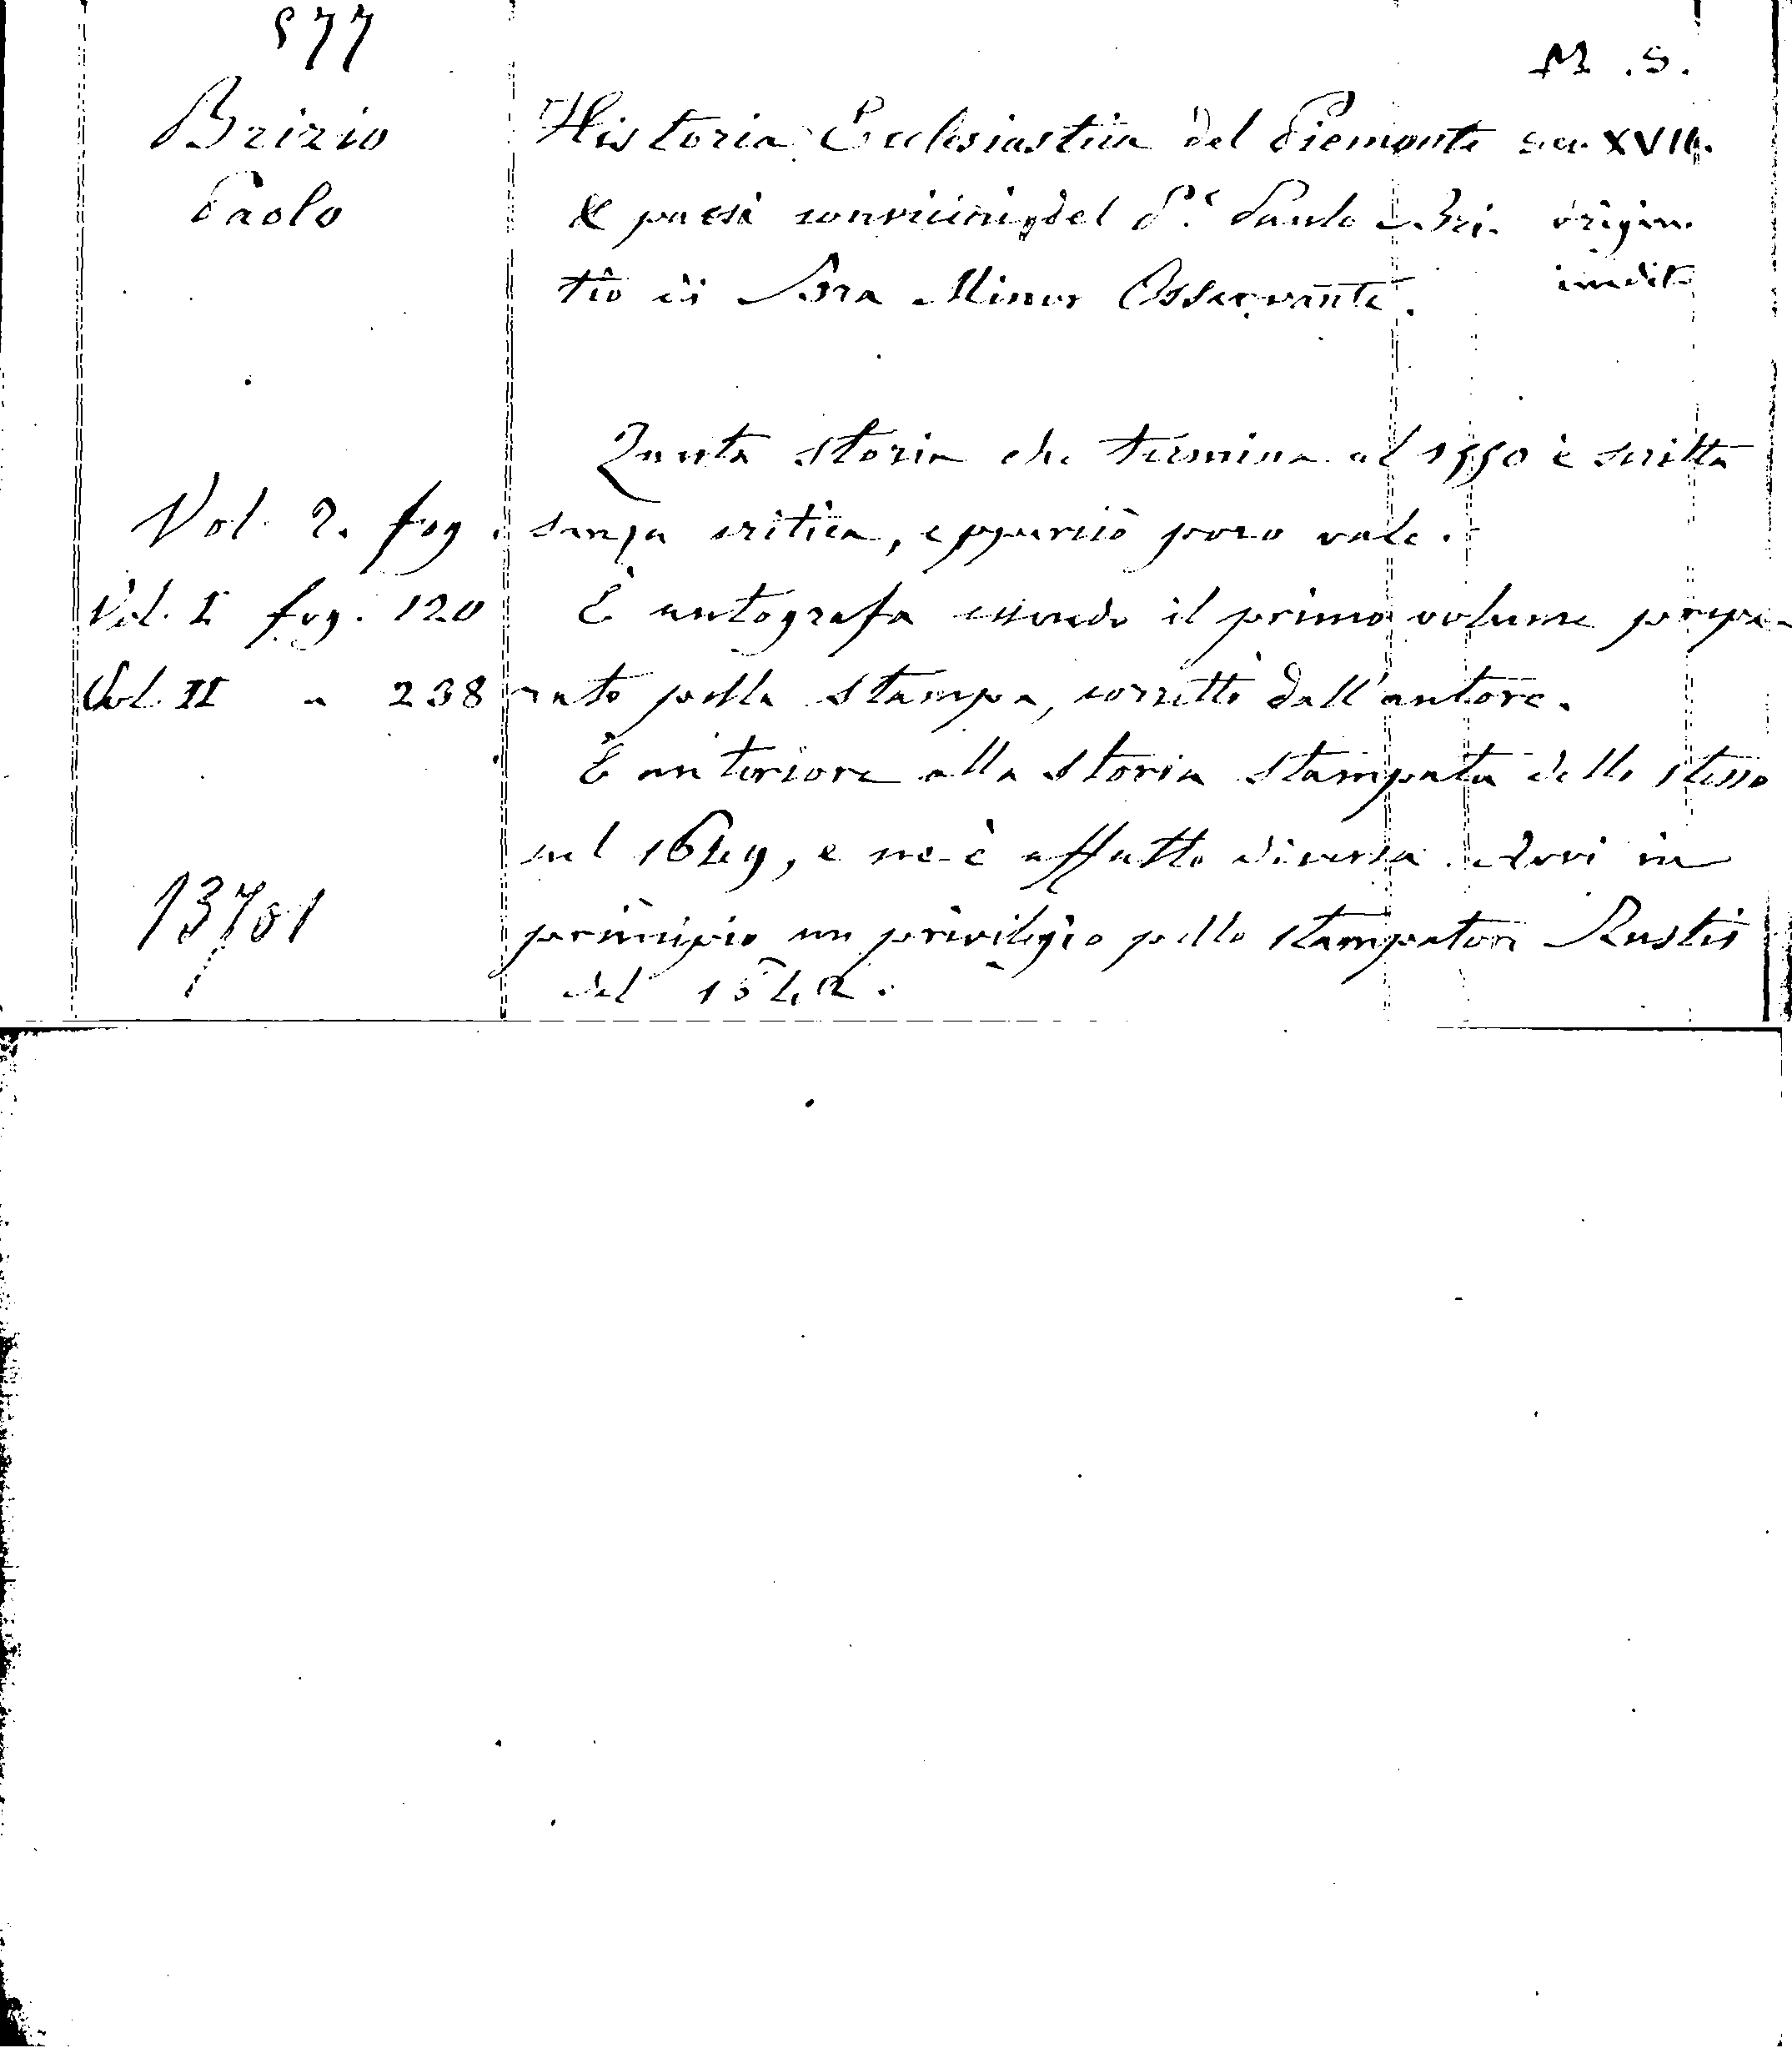 577
M. S.
Brizio
Paolo
Historia Ecclesiastica del Piemonte
sec. XVII.
& paesi convicini, del P.e Paulo Bri-
origin.
tio di Bra Minor Osservante.
inedit.
Questa storia che termina al 1550 è scritta
Vol. 2. fog.
senza critica, epperciò poco vale.
Vol. I fog. 120
È autografa essendo il primo volume prepa-
Vol. II " 238
rato pella stampa, corretto dall'autore.
È anteriore alla storia stampata dello stesso
nel 1649, e ne è affatto diversa. Havvi in
13701
principio un privilegio pello stampatore Rustis
del 1642.